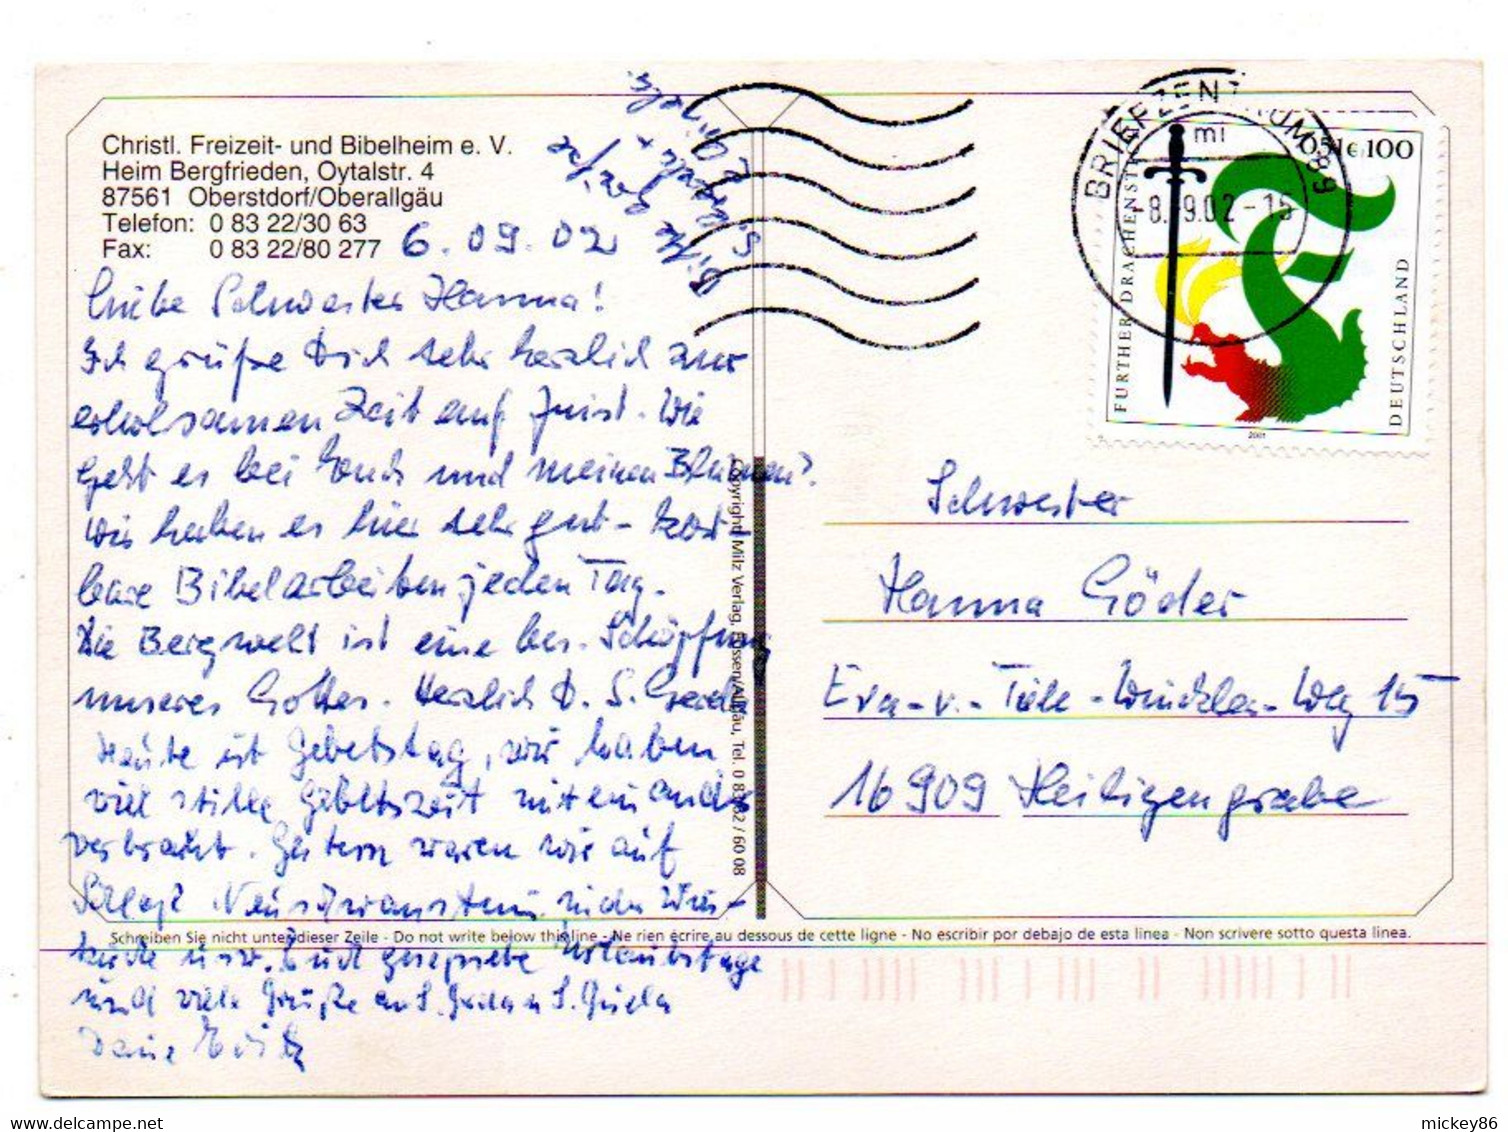 Christl. Freizeit- und Bibelheim e. V.
Heim Bergfrieden, Oytalstr. 4
87561 Oberstdorf/Oberallgäu
Telefon: 0 83 22/30 63
Fax: 0 83 22/80 277
6.09.02
Liebe Schwester Hanna!
Ich grüße Dich sehr herzlich zur
erholsamen Zeit auf Juist. Wie
geht es bei Euch und meinen Blumen?
Wir haben es hier sehr gut - kost-
bare Bibelarbeiten jeden Tag.
Die Bergwelt ist eine bes. Schöpfung
unseres Gottes. Herzlich D. S. Gerda
Heute ist Gebetstag, wir haben
viel stille Gebetszeit miteinander
verbracht. Gestern waren wir auf
Schloß Neuschwanstein, in der Wies-
kirche usw. Euch gesegnete Urlaubstage
und viele Grüße an S. Gerda u S. Gisela
Deine
Bitte
S. Gerda +
BRIEFZENTRUM 89
mi
-8.-9.02-15
0,51€ 100
FURTHER DRACHENSTICH
DEUTSCHLAND
2001
Schwester
Hanna Göder
Eva-v.-Tiele-Winckler-Weg 15
16909 Heiligengrabe
Copyright Milz Verlag, Füssen/Allgäu, Tel. 0 83 62 / 60 08
Schreiben Sie nicht unter dieser Zeile - Do not write below this line - Ne rien écrire au dessous de cette ligne - No escribir por debajo de esta linea - Non scrivere sotto questa linea.
mickey86